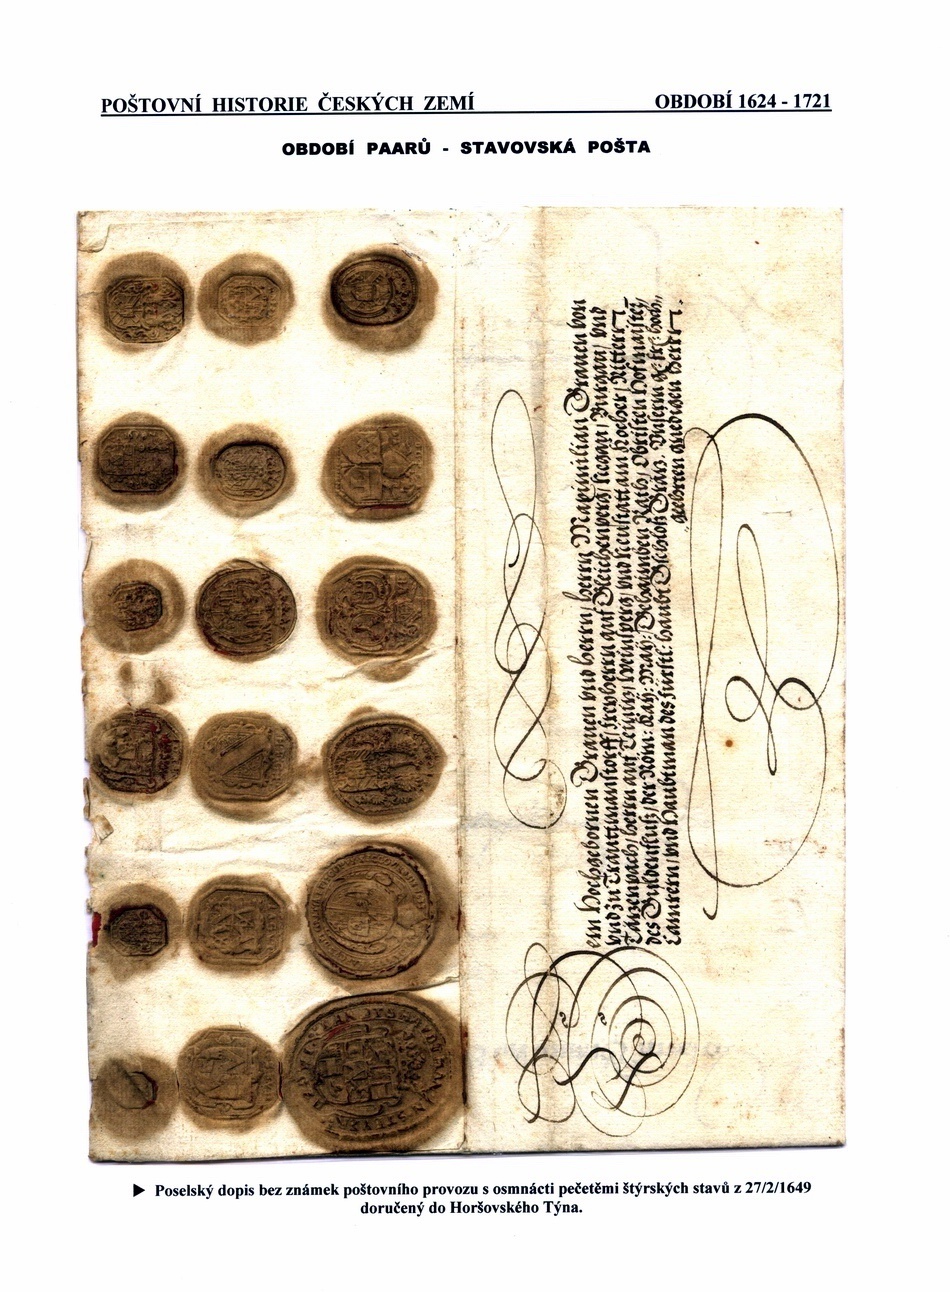 POŠTOVNÍ HISTORIE ČESKÝCH ZEMÍ OBDOBÍ 1624 - 1721
OBDOBÍ PAARŮ - STAVOVSKÁ POŠTA
em Hochgebornen Grauen und herrn, herrn Maximilian Grauen von
und zu Trauttmanstorff, freyherrn auf Gleichenperg, Negau, Burgau, und
Täzenpach, herrn auf Teiniz, Weinsperg, und Neustatt am Kocher, Rittern
des Guldenfluß, der Röm: Kay: May: Gehaimben Rath, Obristen Hofmaister,
Camrern, und Haubtman des Fürstl: haubt Schloß Gräz. Unserm
gnedigen herrn.
► Poselský dopis bez známek poštovního provozu s osmnácti pečetěmi štýrských stavů z 27/2/1649
doručený do Horšovského Týna.